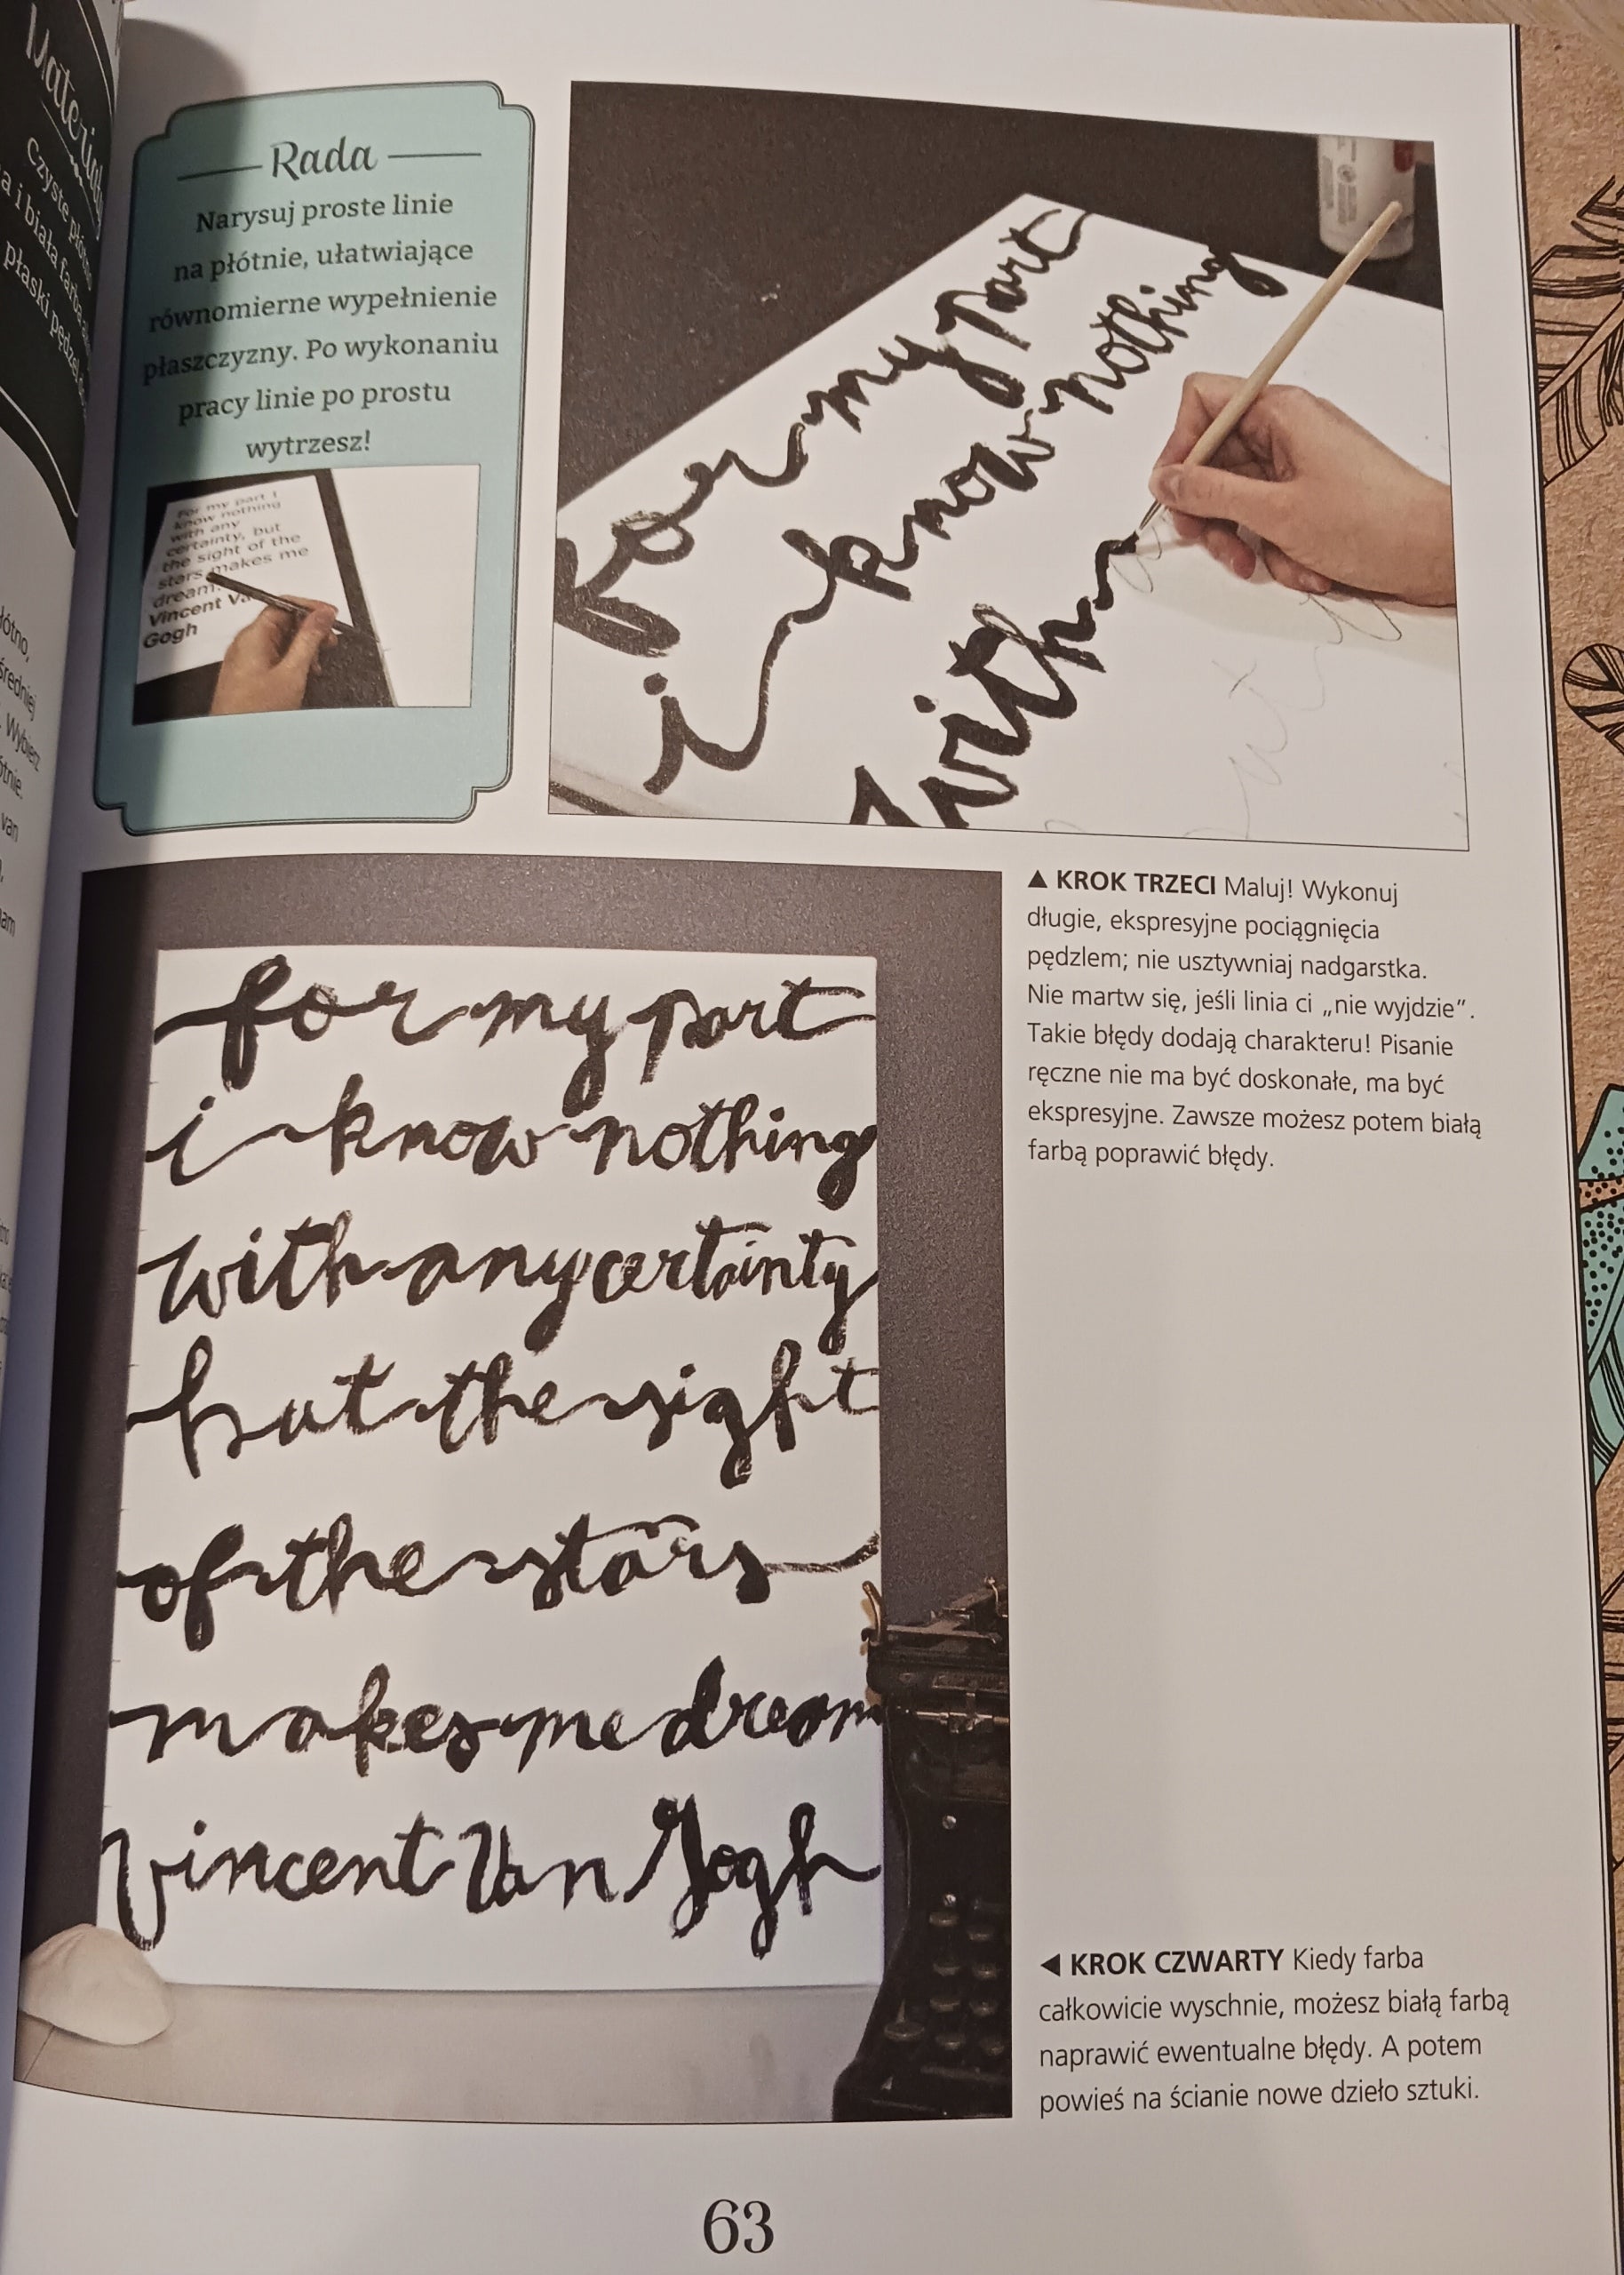 Materiały
Czyste płótno
a i biała farba
płaski pędzel
płótno,
średniej
Wybierz
van
Rada
Narysuj proste linie
na płótnie, ułatwiające
równomierne wypełnienie
płaszczyzny. Po wykonaniu
pracy linie po prostu
wytrzesz!
For my part I
know nothing
with any
certainty, but
the sight of the
stars makes me
dream.
Vincent
Gogh
for my part
i know nothing
with
▲ KROK TRZECI Maluj! Wykonuj
długie, ekspresyjne pociągnięcia
pędzlem; nie usztywniaj nadgarstka.
Nie martw się, jeśli linia ci „nie wyjdzie”.
Takie błędy dodają charakteru! Pisanie
ręczne nie ma być doskonałe, ma być
ekspresyjne. Zawsze możesz potem białą
farbą poprawić błędy.
for my part
i know nothing
with any certainty
but the sight
of the stars
makes me dream
Vincent Van Gogh
◄ KROK CZWARTY Kiedy farba
całkowicie wyschnie, możesz białą farbą
naprawić ewentualne błędy. A potem
powieś na ścianie nowe dzieło sztuki.
63